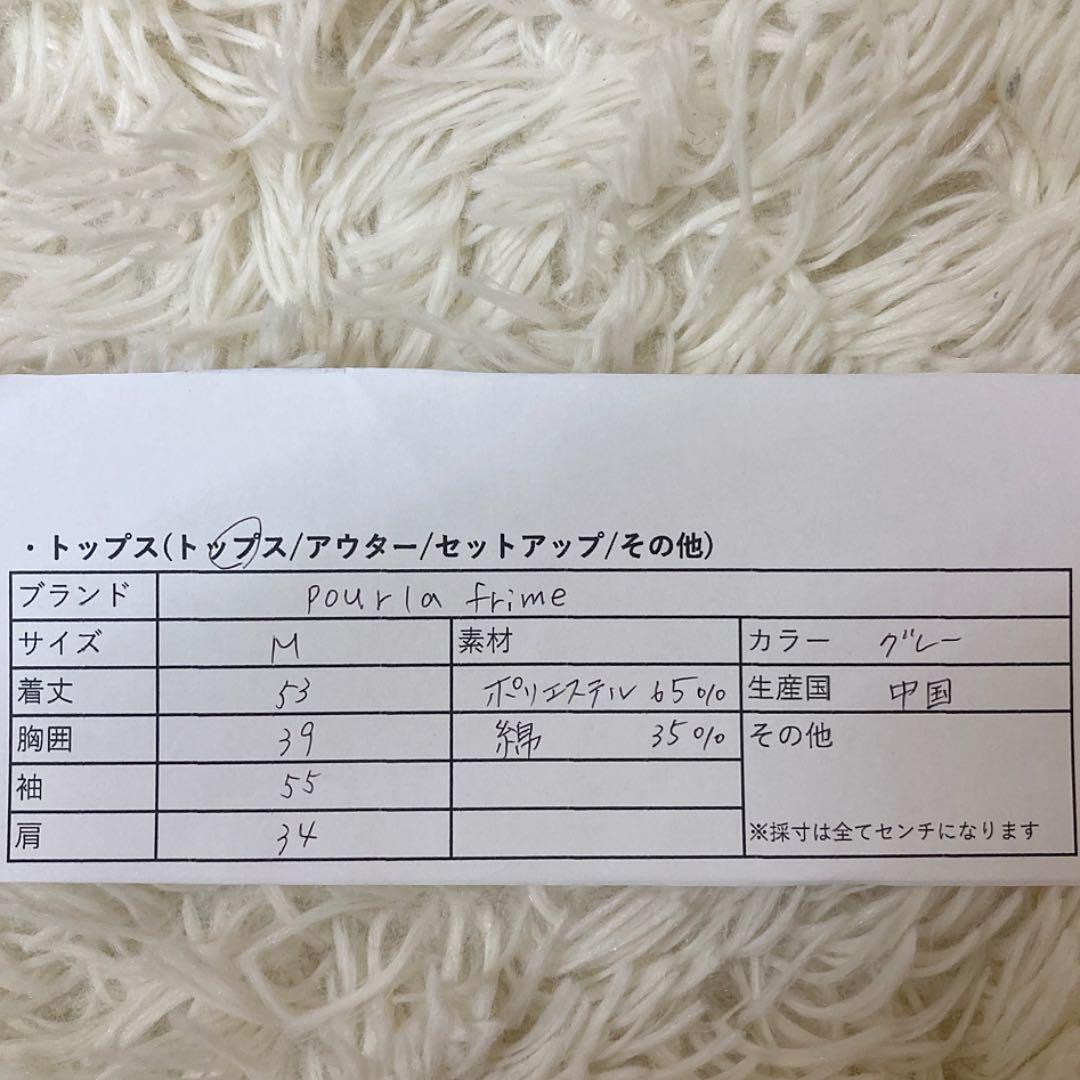 ・トップス(トップス/アウター/セットアップ/その他)
ブランド pour la frime
サイズ M 素材 カラー グレー
着丈 53 ポリエステル 65% 生産国 中国
胸囲 39 綿 35% その他
袖 55
肩 34 ※採寸は全てセンチになります